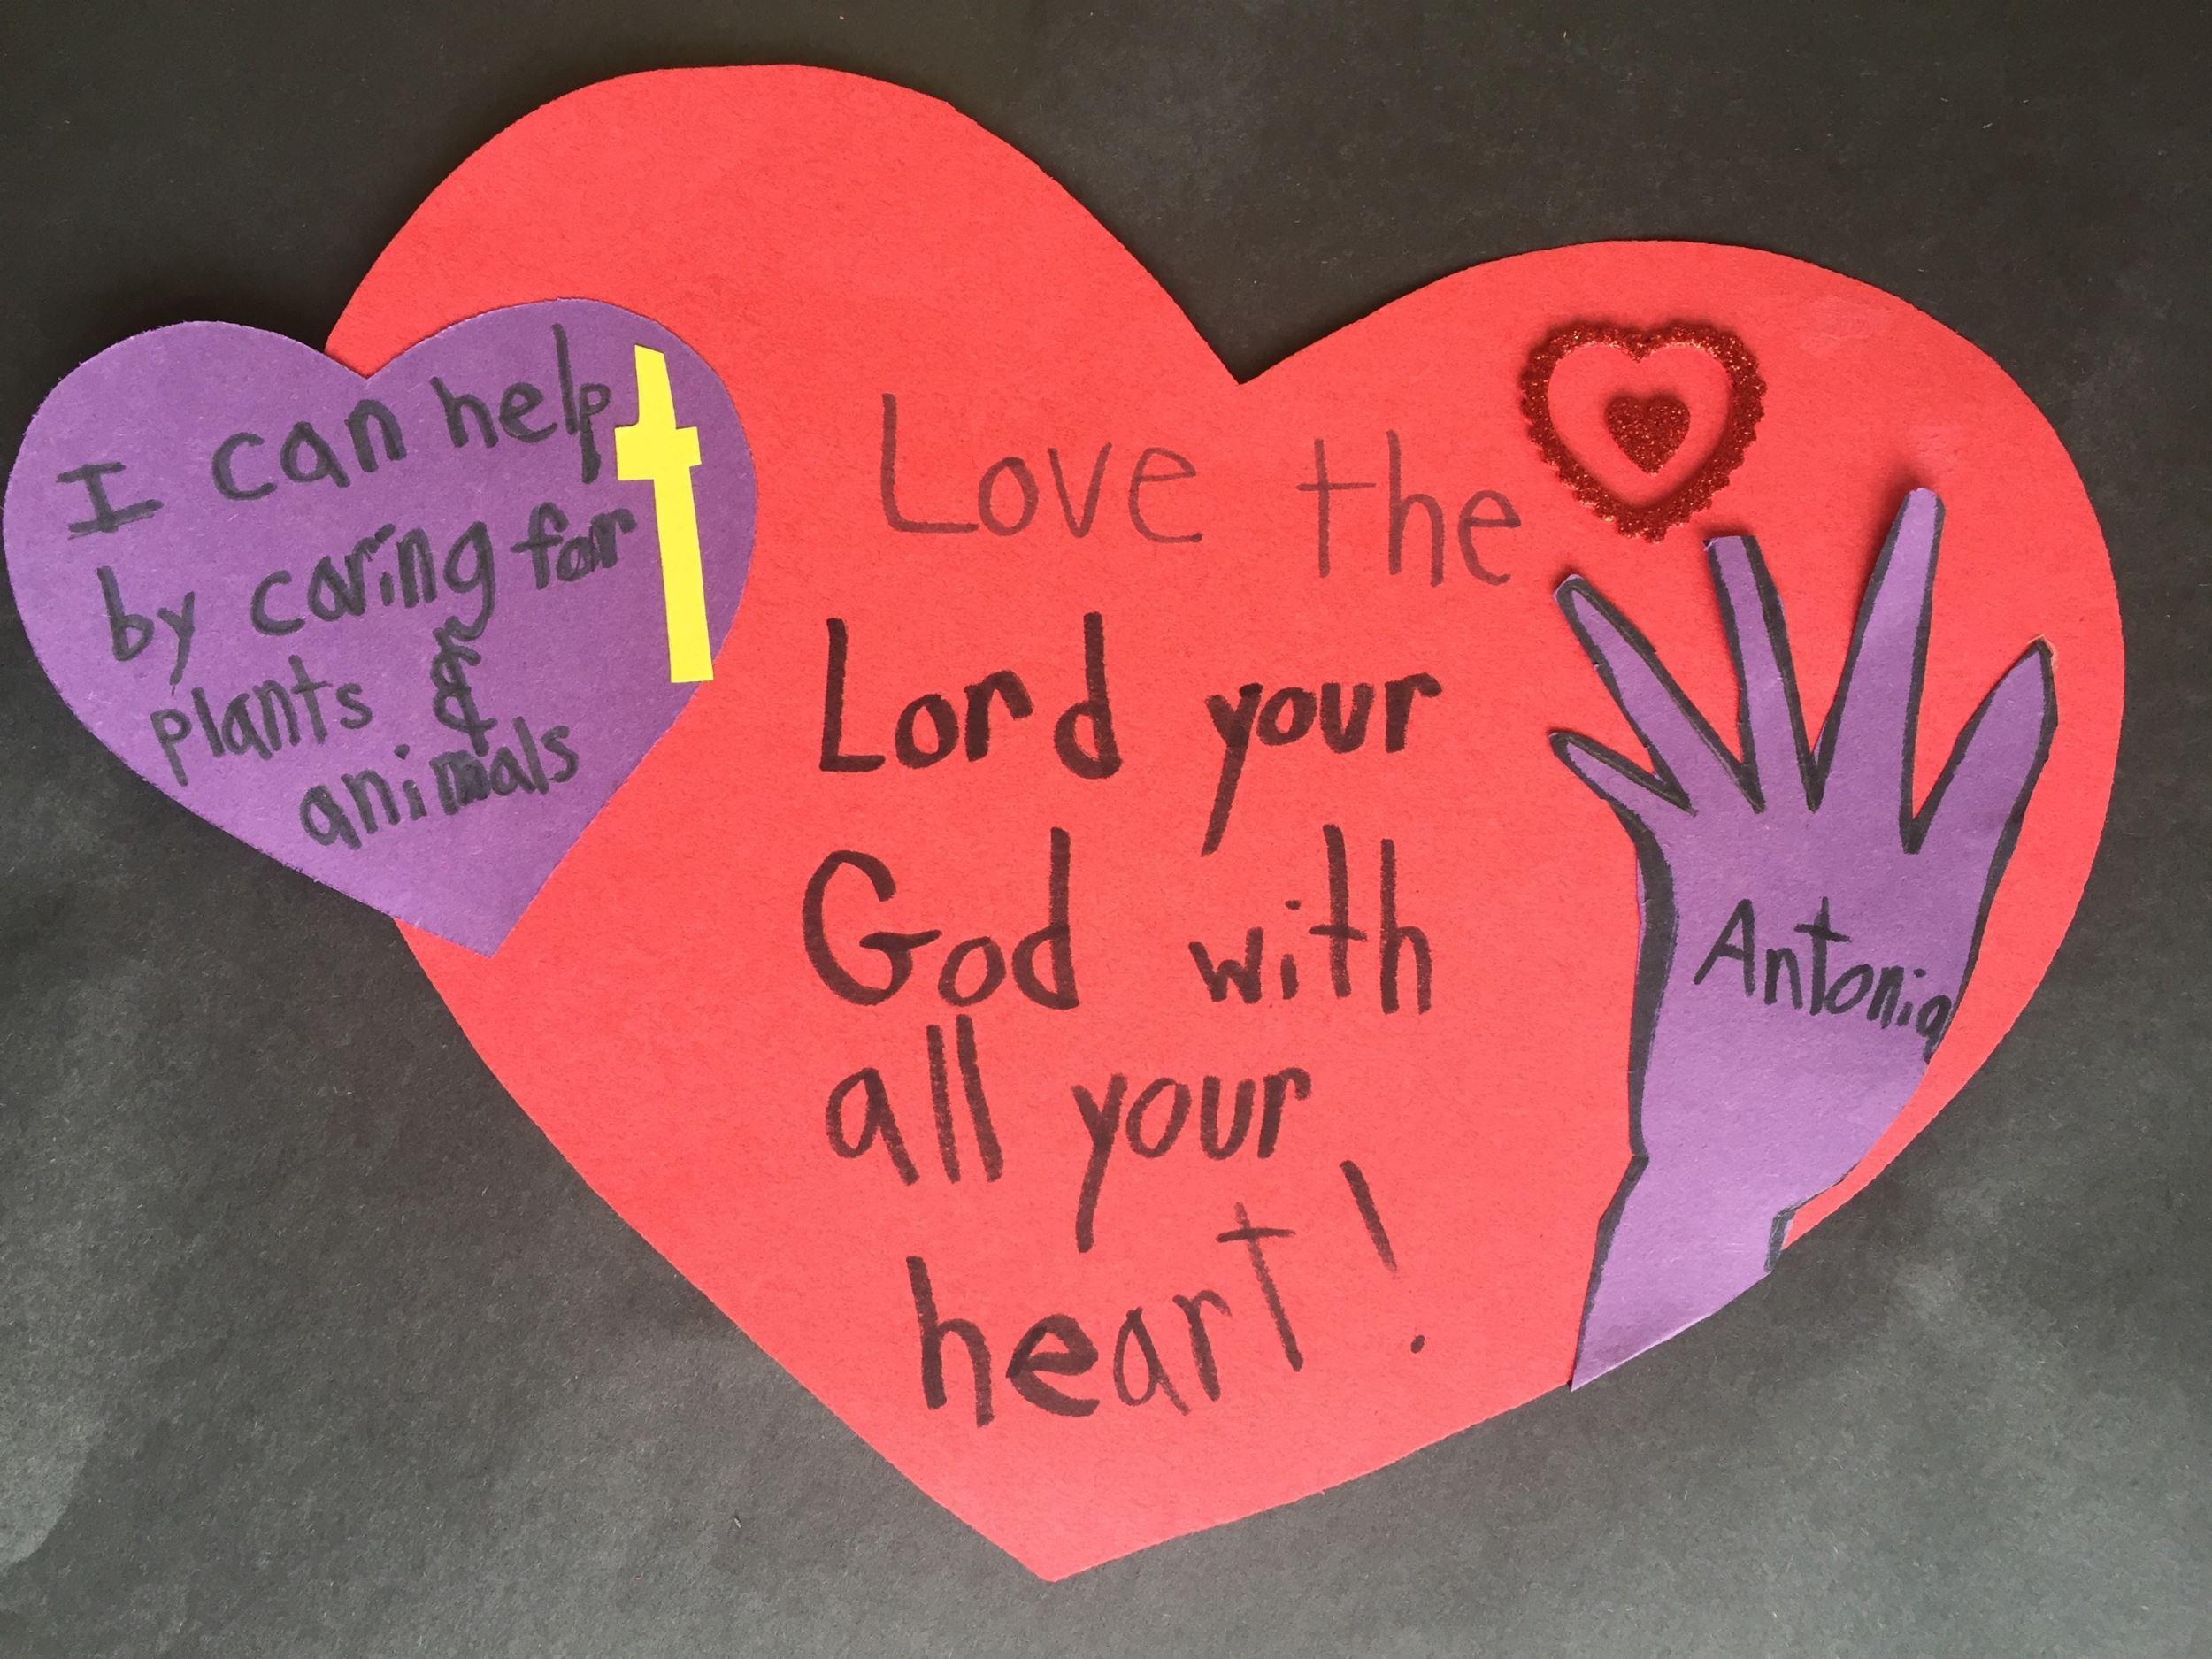 I can help
by caring for
plants &
animals
Love the
Lord your
God with
all your
heart!
Antonia